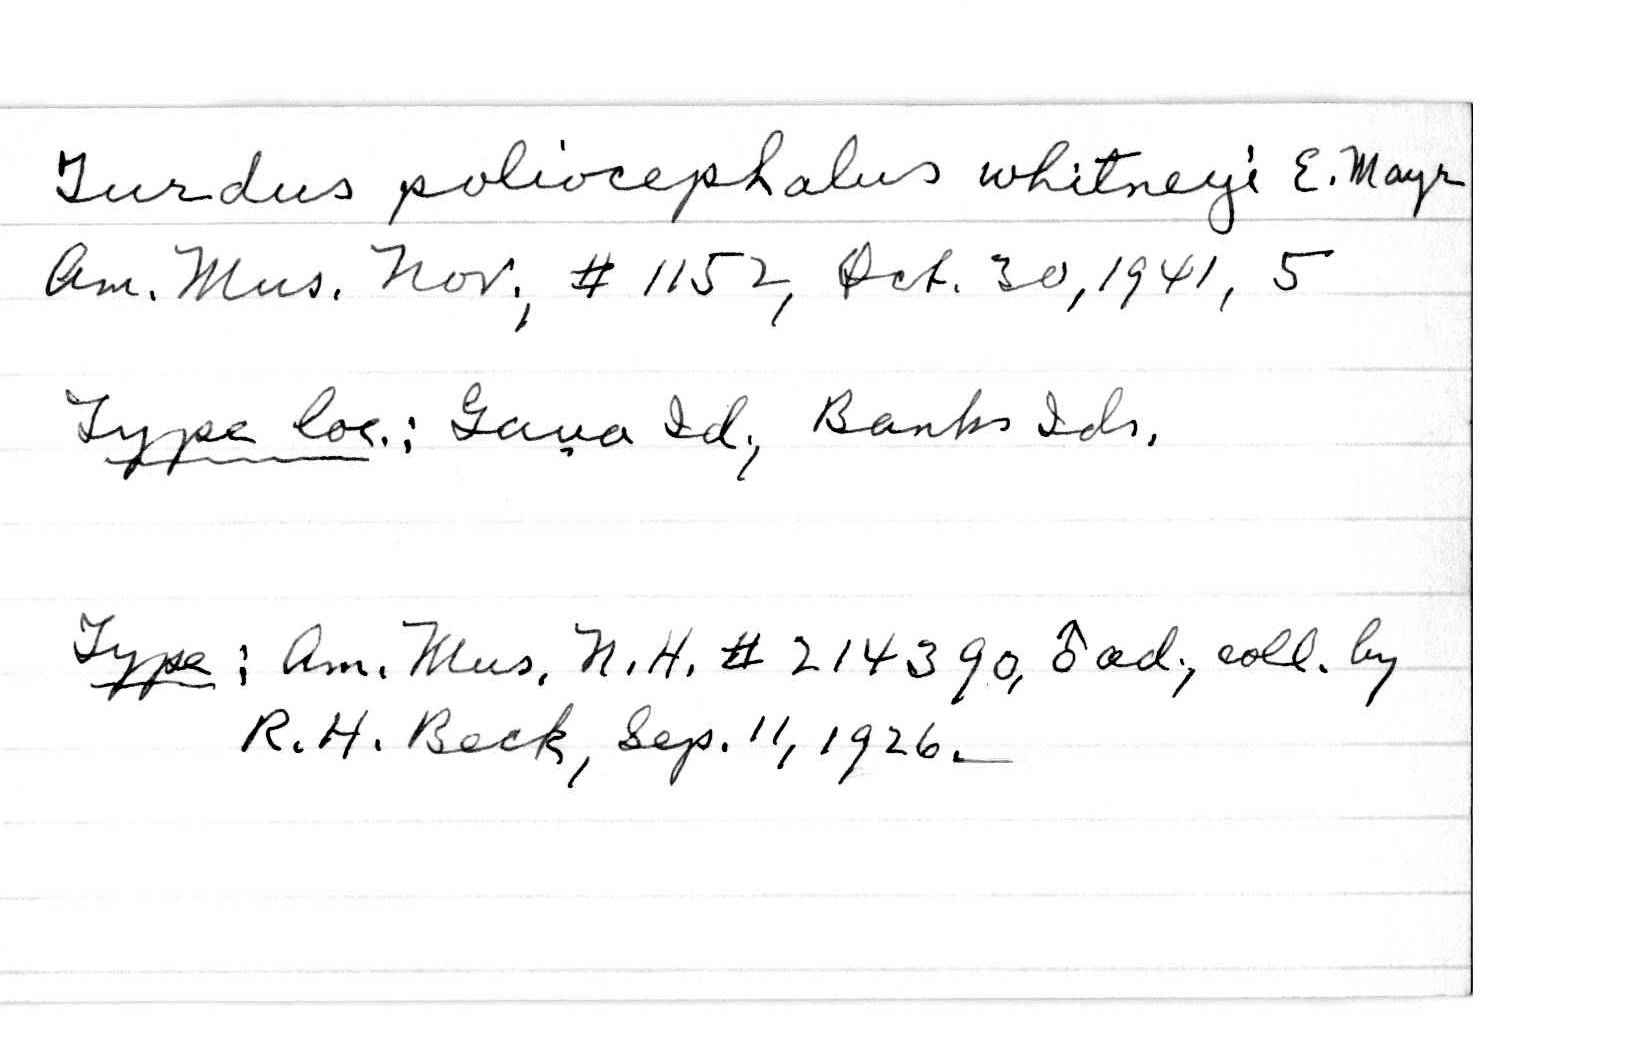 Turdus poliocephalus whitneyi E. Mayr
Am. Mus. Nov., # 1152, Oct. 30, 1941, 5
Type loc.: Gaua Id., Banks Ids.
Type: Am. Mus. N.H. # 214390, ♂ ad., coll. by
R.H. Beck, Sep. 11, 1926.